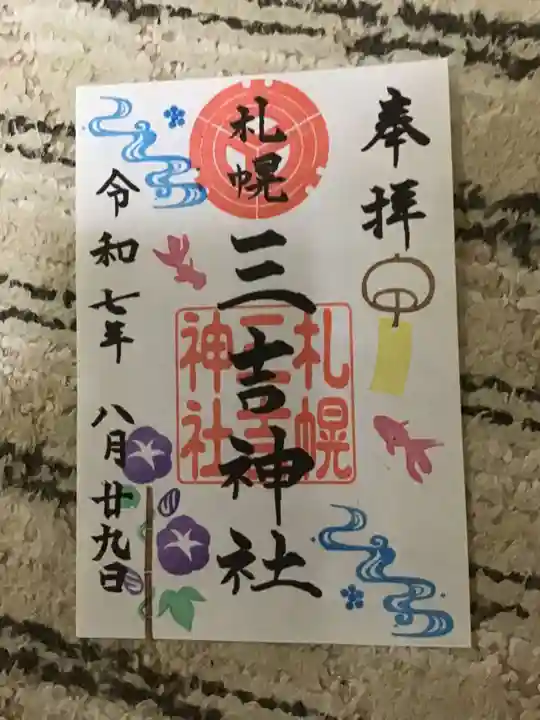 奉拝
札幌
三吉神社
札幌
三吉
神社
令和七年 八月廿九日